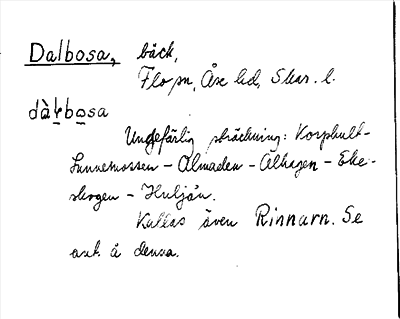 Dalbosa, bäck,
Flo sn, Åse hd, Skar. l.
dàrbosa
Ungefärlig sträckning: Korphult-
Lunnemossen - Almaden - Alhagen - Eke-
skogen - Huljån.
Kallas även Rinnarn. Se
ank. å denna.